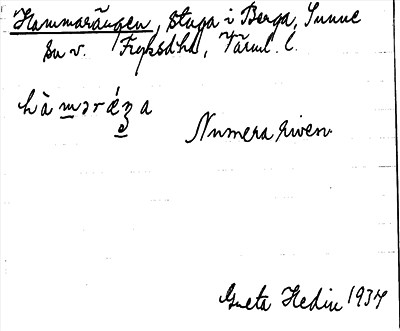 Hammarängen, stuga i Berga, Sunne
sn v. Fryksdhd, Värml. l.
hàməráeŋa
Numera riven
Greta Hedin 1934